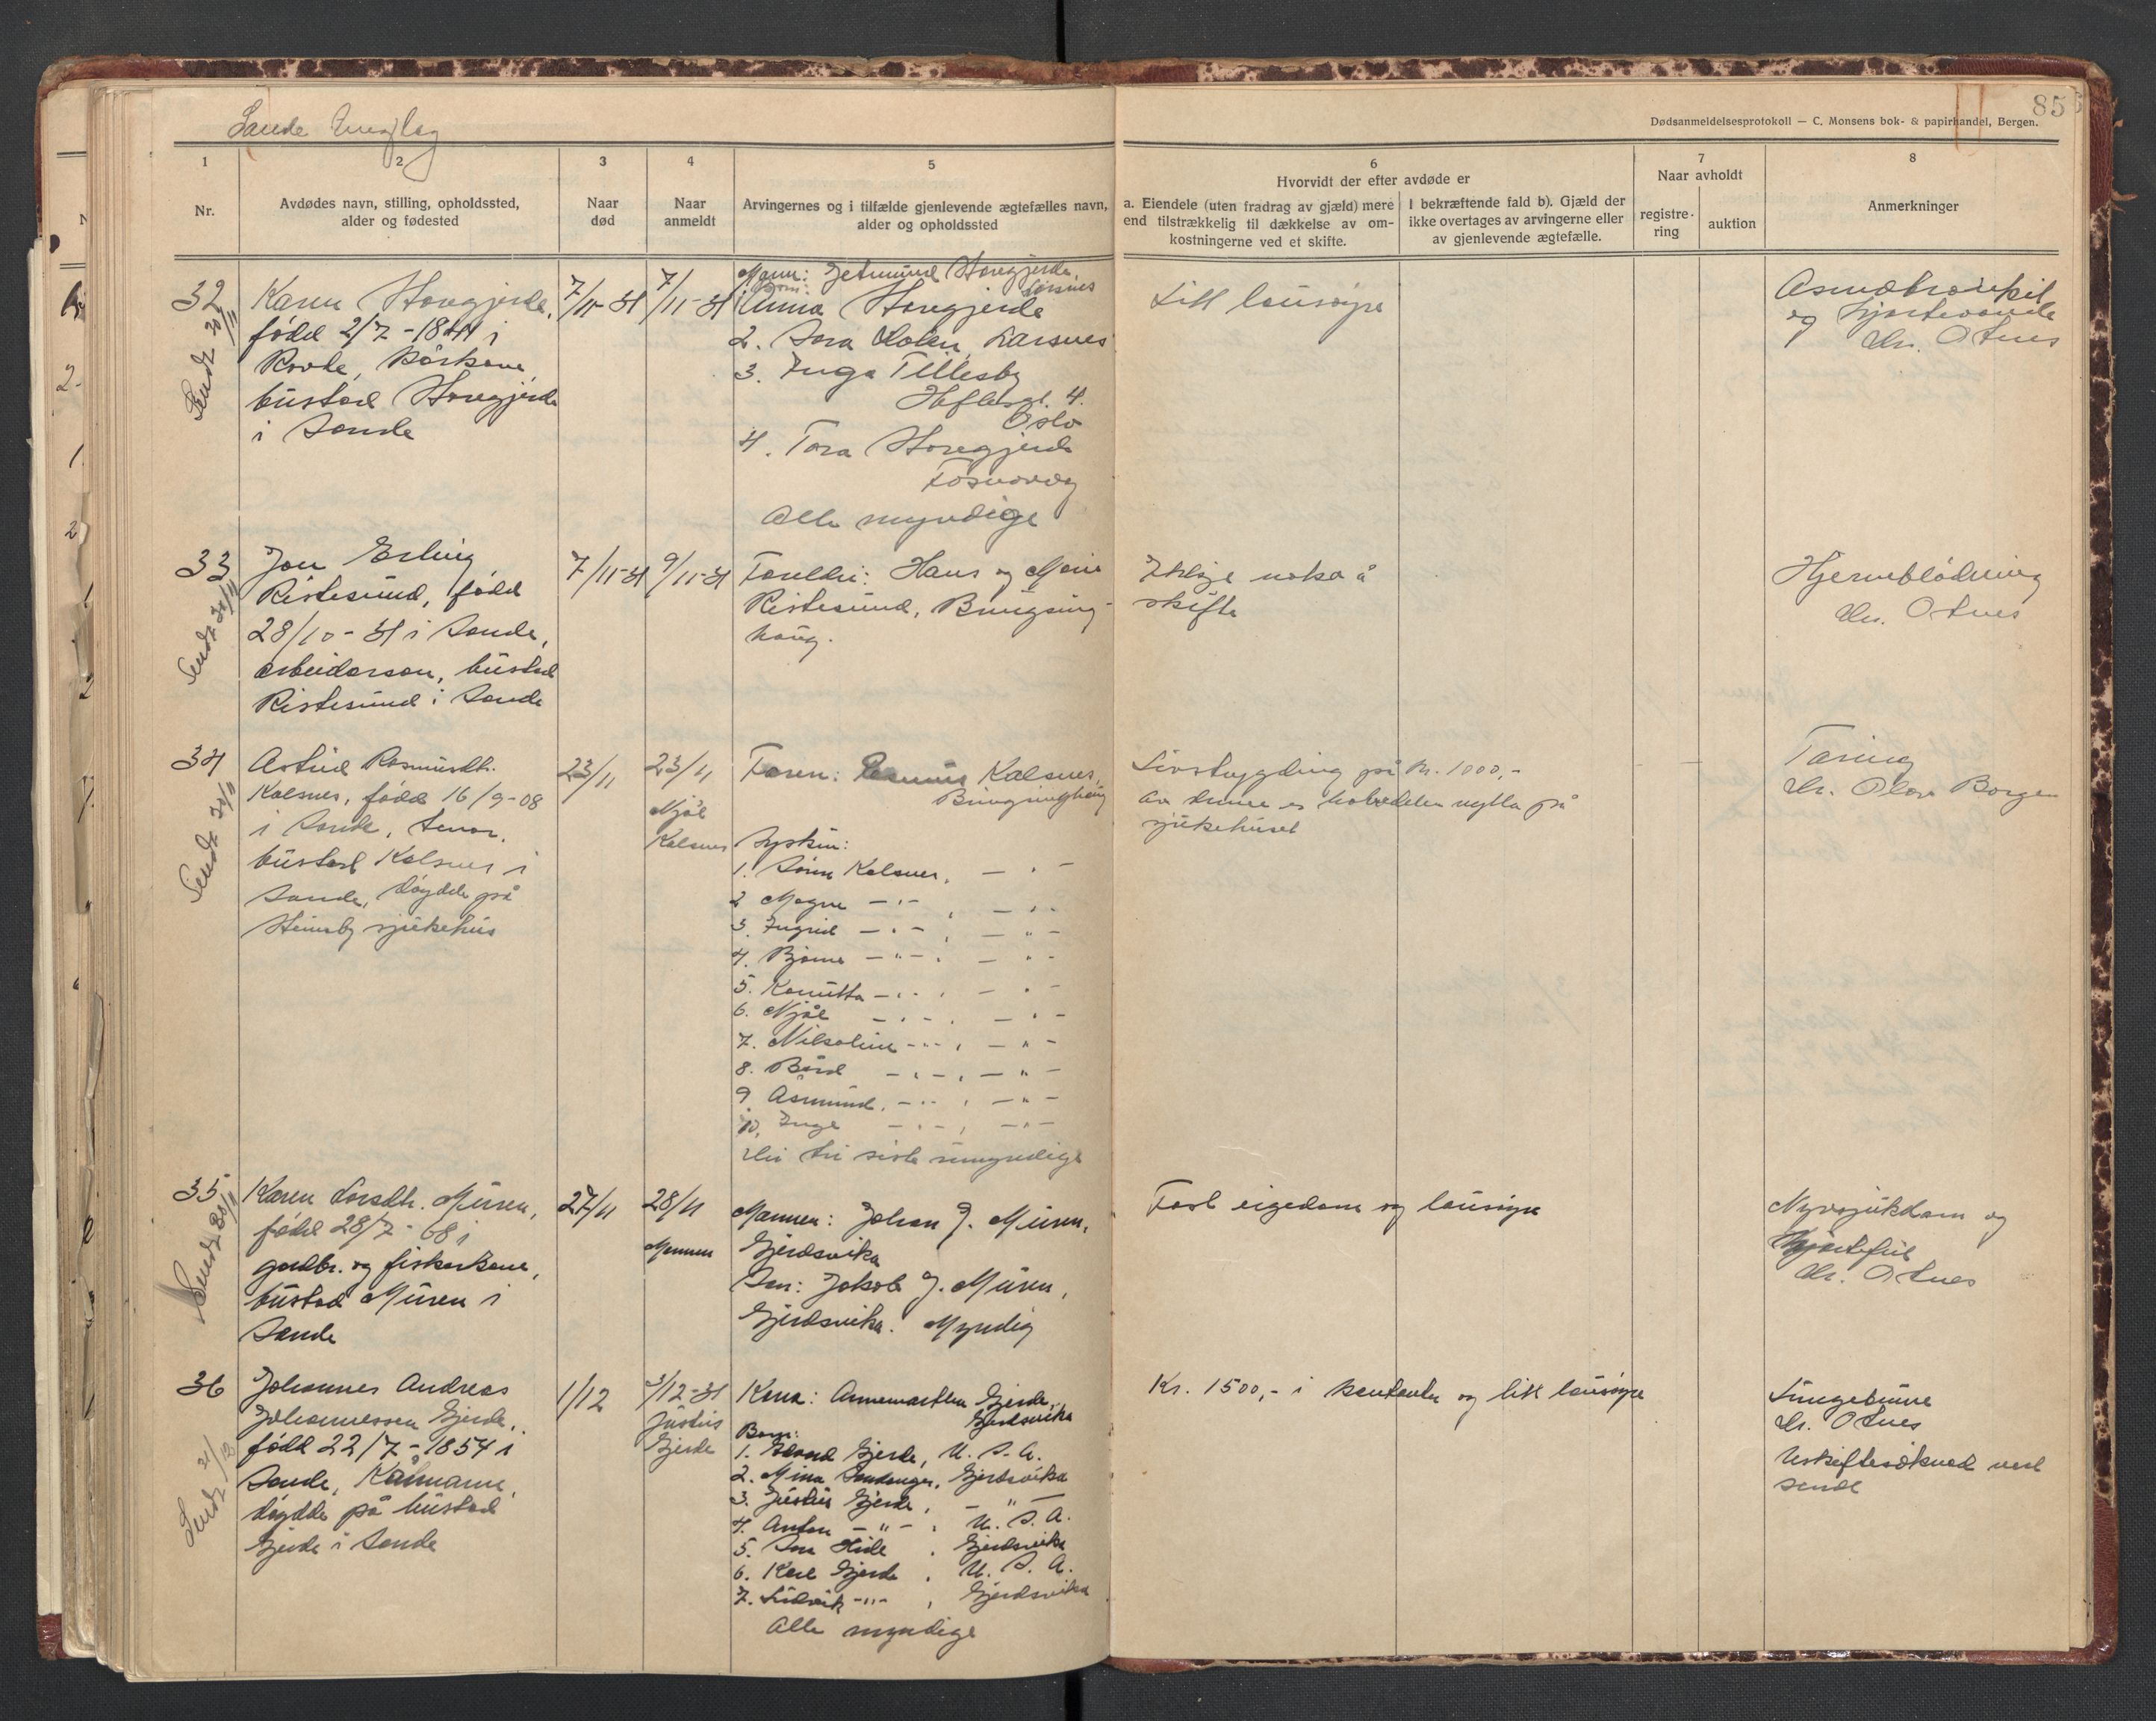 85
Sande
Dødsanmeldelsesprotokoll — C. Monsens bok- & papirhandel, Bergen.
1
2
3
4
5
6
7
8
Nr.
Avdødes navn, stilling, opholdssted,
alder og fødested
Naar
død
Naar
anmeldt
Arvingernes og i tilfælde gjenlevende ægtefælles navn,
alder og opholdssted
Hvorvidt der efter avdøde er
a. Eiendele (uten fradrag av gjæld) mere
end tilstrækkelig til dækkelse av om-
kostningerne ved et skifte.
I bekræftende fald b). Gjæld der
ikke overtages av arvingerne eller
av gjenlevende ægtefælle.
Naar avholdt
registre-
ring
auktion
Anmerkninger
32
Sendt 30/11
Karen Storegjerde,
født 2/7 - 1844 i
bustad Storegjerde
i Sande
7/11-31
7/11-31
Mann: Storegjerde,
Larsnes
Born:
1. Anna Storegjerde
2. Sara Holen, Larsnes
3. Inga Tillesby
4.
Oslo
4. Tora Storegjerde
Alle myndige
Litt lausøyre
og
Dr. Otnes
33
Sendt 30/11
Jon Erling
Ristesund, født
28/10 - 31 i Sande,
arbeidarson, bustad
Ristesund i Sande
7/11-31
9/11-31
Foreldre: Hans og Marie
Ristesund, Bringsing-
haug.
Ikkje noko å
skifte
Hjerneblødning
Dr. Otnes
34
Sendt 30/11
Astrid Rasmusdtr.
Kalsnes, født 16/9-08
i Sande,
bustad Kalsnes i
Sande, døydde på
sjukehus
23/11
23/11
Njål
Kalsnes
Faren: Rasmus Kalsnes,
Bringsinghaug
Syskin:
1. Kalsnes, — " —
2 Magne — " — , — " —
3. Ingrid — " — , — " —
4. Bjarne — " — , — " —
5. — " — , — " —
6. Njål — " — , — " —
7. Nikoline — " — , — " —
8. Bård — " — , — " —
9 Åsmund. — " — , — " —
10. Inge — " — , — " —
Dei tri siste umyndige
Livstrygding på kr. 1000,-
Av denne er halvdelen nytta på
sjukehuset
Tæring
Dr. Olav Borgen
35
Sendt 30/11
Karen Larsdtr. Muren,
født 28/7 - 68 i
gardbr. og fiskarkone,
bustad Muren i
Sande
27/11
28/11
Mannen
Mannen: Johan J. Muren,
Gjerdsvika
Son: Jakob J. Muren,
Gjerdsvika. Myndig
Fast eigedom og lausøyre
Nyresjukdom og
Hjartefeil
Dr. Otnes
36
Sendt 31/12
Johannes Andreas
Johannessen Gjerde,
født 22/7 - 1854 i
Sande, Kårmann,
døydde på bustad
Gjerde i Sande
1/12
3/12-31
Justus
Gjerde
Kona: Annemarthe Gjerde,
Gjerdsvika
Born:
1. Edvard Gjerde, U. S. A.
2. Mina Sandanger, Gjerdsvika
3. Justus Gjerde, — " —
4. Anton — " — , U. S. A.
5. Hide , Gjerdsvika
6. Karl Gjerde , U. S. A.
7. Ludvik — " — , Gjerdsvika
Alle myndige
Kr. 1500,- i kontanter og litt lausøyre
Lungebunne
Dr. Otnes
Uskiftesøknad vert
sendt